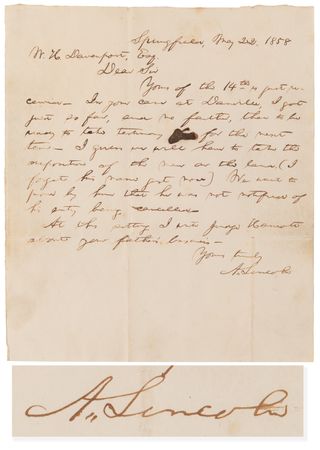 Springfield, May 22. 1858
W. H. Davenport, Esq.
Dear Sir
Yours of the 14th is just re-
ceived— In your case at Danville, I got
just so far, and no farther, than to be
ready to take testimony for the next
term— I guess we will have to take the
of the man on the land (I
forget his name just now) We want to
prove by him that he was not notified of
his entry being cancelled—
At this sitting I write Judge
about your father's business—
Yours truly
A. Lincoln
A. Lincoln